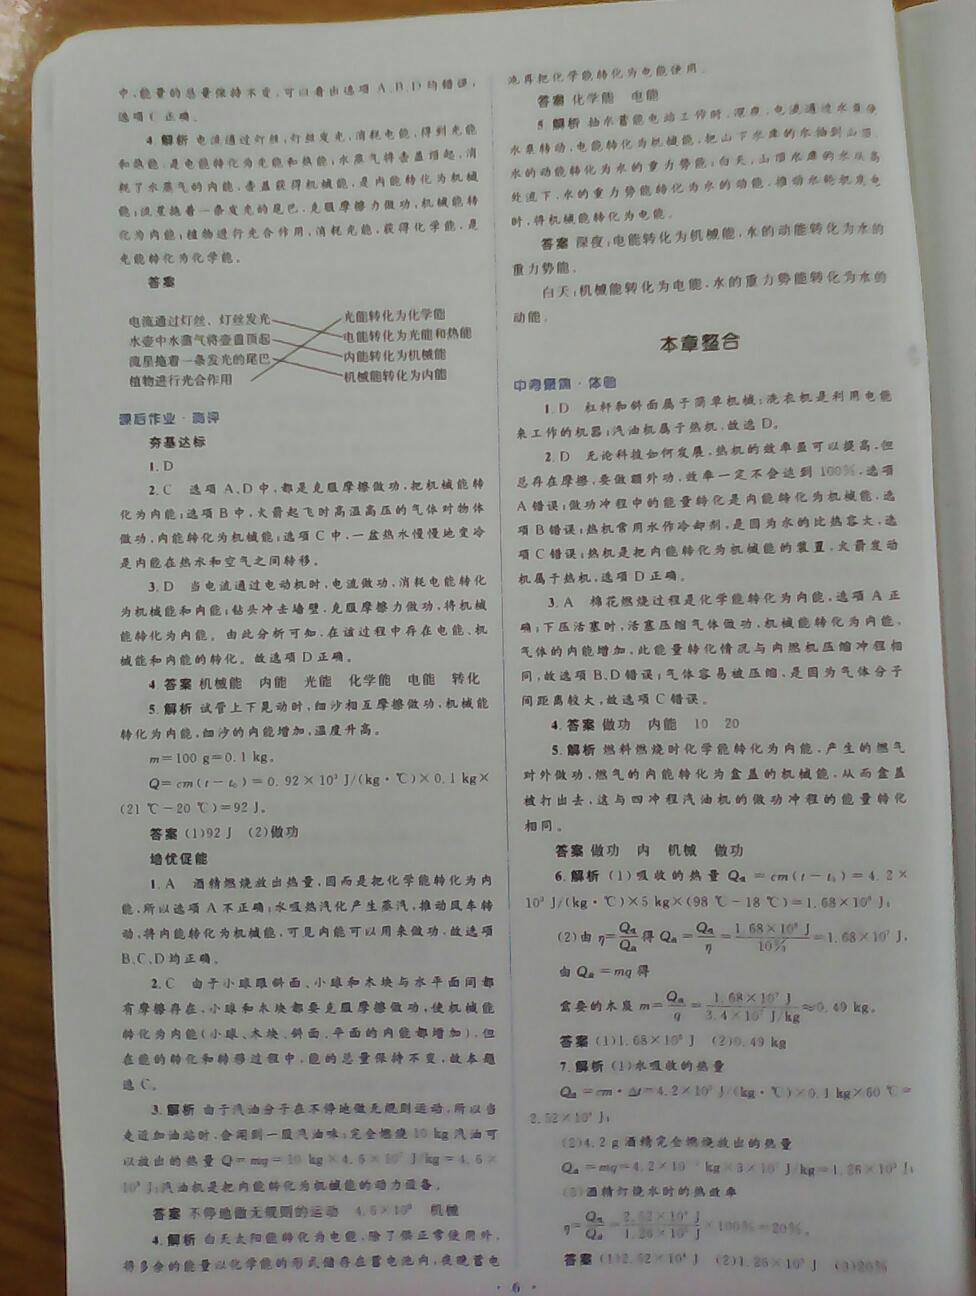 中,能量的总量保持不变,可以看出选项 A、B、D 均错误,
选项 C 正确。
4 解析 电流通过灯丝,灯丝发光,消耗电能,得到光能
和热能,是电能转化为光能和热能;水蒸气将壶盖顶起,消
耗了水蒸气的内能,壶盖获得机械能,是内能转化为机械
能;流星拖着一条发光的尾巴,克服摩擦力做功,机械能转
化为内能;植物进行光合作用,消耗光能,获得化学能,是
光能转化为化学能。
答案
电流通过灯丝、灯丝发光 光能转化为化学能
水壶中水蒸气将壶盖顶起 电能转化为光能和热能
流星拖着一条发光的尾巴 内能转化为机械能
植物进行光合作用 机械能转化为内能
课后作业·测评
夯基达标
1. D
2. C 选项 A、D 中,都是克服摩擦做功,把机械能转
化为内能;选项 B 中,火箭起飞时高温高压的气体对物体
做功,内能转化为机械能;选项 C 中,一盆热水慢慢地变冷
是内能在热水和空气之间转移。
3. D 当电流通过电动机时,电流做功,消耗电能转化
为机械能和内能;钻头冲击墙壁,克服摩擦力做功,将机械
能转化为内能。由此分析可知,在该过程中存在电能、机
械能和内能的转化。故选项 D 正确。
4 答案 机械能 内能 光能 化学能 电能 转化
5. 解析 试管上下晃动时,细沙相互摩擦做功,机械能
转化为内能,细沙的内能增加,温度升高。
m=100 g=0.1 kg。
Q=cm(t-t₀)=0.92×10³ J/(kg·℃)×0.1 kg×
(21 ℃-20 ℃)=92 J。
答案 (1)92 J (2)做功
培优促能
1. A 酒精燃烧放出热量,因而是把化学能转化为内
能,所以选项 A 不正确;水吸热汽化产生蒸汽,推动风车转
动,将内能转化为机械能,可见内能可以用来做功,故选项
B、C、D 均正确。
2. C 由于小球跟斜面、小球和木块与水平面间都
有摩擦存在,小球和木块都要克服摩擦做功,使机械能
转化为内能(小球、木块、斜面、平面的内能都增加),但
在能的转化和转移过程中,能的总量保持不变,故本题
选 C。
3. 解析 由于汽油分子在不停地做无规则运动,所以当
走近加油站时,会闻到一股汽油味;完全燃烧 10 kg 汽油可
以放出的热量 Q=mq=10 kg×4.6×10⁷ J/kg=4.6×
10⁸ J;汽油机是把内能转化为机械能的动力设备。
答案 不停地做无规则的运动 4.6×10⁸ 机械
4. 解析 白天太阳能转化为电能,除了供正常使用外,
将多余的能量以化学能的形式储存在蓄电池内,夜晚蓄电
池再把化学能转化为电能使用。
答案 化学能 电能
5 解析 抽水蓄能电站工作时,深夜,电流通过水
水泵转动,电能转化为机械能,把山下水库的水抽到山顶,
水的动能转化为水的重力势能;白天,山顶水库的水从高
处流下,水的重力势能转化为水的动能,推动水轮机发电
时,将机械能转化为电能。
答案 深夜:电能转化为机械能,水的动能转化为水的
重力势能。
白天:机械能转化为电能,水的重力势能转化为水的
动能。
本章整合
中考聚焦·体验
1. D 杠杆和斜面属于简单机械;洗衣机是利用电能
来工作的机器;汽油机属于热机,故选 D。
2. D 无论科技如何发展,热机的效率虽可以提高,但
总存在摩擦,要做额外功,效率一定不会达到 100%,选项
A 错误;做功冲程中的能量转化是内能转化为机械能,选
项 B 错误;热机常用水作冷却剂,是因为水的比热容大,选
项 C 错误;热机是把内能转化为机械能的装置,火箭发动
机属于热机,选项 D 正确。
3. A 棉花燃烧过程是化学能转化为内能,选项 A 正
确;下压活塞时,活塞压缩气体做功,机械能转化为内能,
气体的内能增加,此能量转化情况与内燃机压缩冲程相
同,故选项 B、D 错误;气体容易被压缩,是因为气体分子
间距离较大,故选项 C 错误。
4. 答案 做功 内能 10 20
5. 解析 燃料燃烧时化学能转化为内能,产生的燃气
对外做功,燃气的内能转化为盒盖的机械能,从而盒盖
被打出去,这与四冲程汽油机的做功冲程的能量转化
相同。
答案 做功 内 机械 做功
6. 解析 (1)吸收的热量 Q吸=cm(t-t₀)=4.2×
10³ J/(kg·℃)×5 kg×(98 ℃-18 ℃)=1.68×10⁶ J;
(2)由 η=Q吸/Q放 得 Q放=Q吸/η=1.68×10⁶ J/10%=1.68×10⁷ J,
由 Q放=mq 得
需要的木炭 m=Q放/q=1.68×10⁷ J/3.4×10⁷ J/kg≈0.49 kg。
答案 (1)1.68×10⁶ J (2)0.49 kg
7. 解析 (1)水吸收的热量
Q吸=cm·Δt=4.2×10³ J/(kg·℃)×0.1 kg×60 ℃=
2.52×10⁴ J;
(2)4.2 g 酒精完全燃烧放出的热量
Q放=mq=4.2×10⁻³ kg×3×10⁷ J/kg=1.26×10⁵ J;
(3)酒精灯烧水时的热效率
η=Q吸/Q放=2.52×10⁴ J/1.26×10⁵ J×100%=20%。
答案 (1)2.52×10⁴ J (2)1.26×10⁵ J (3)20%
·6·